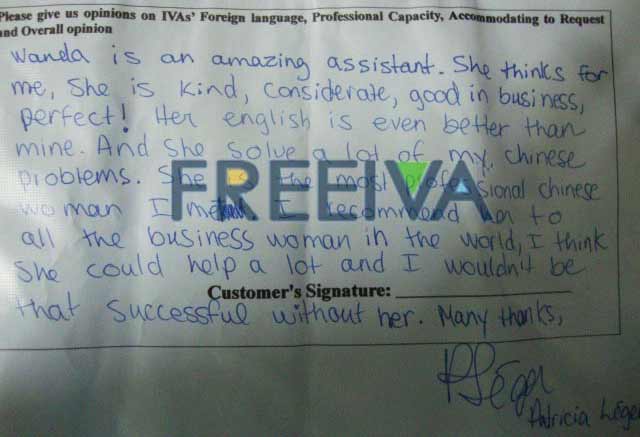 Please give us opinions on IVAs' Foreign language, Professional Capacity, Accommodating to Request
and Overall opinion
Wanda is an amazing assistant. She thinks for
me, She is kind, considerate, good in business,
perfect! Her english is even better than
mine. And She solve a lot of my chinese
problems. She is the most professional chinese
woman I I recommend her to
all the business woman in the world, I think
She could help a lot and I wouldn't be
Customer's Signature:
that successful without her. Many thanks,
FREEIVA
PLéger
Patricia Léger